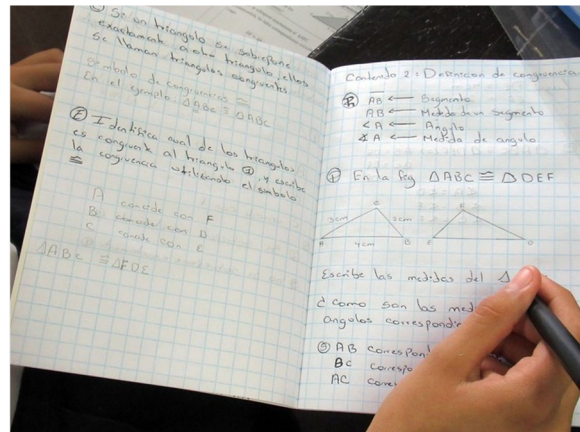 Si un triangulo se sobrepone
exactamente a otro triangulo, ellos
se llaman triangulos congruentes
Simbolo de congruencias ≅
En el ejemplo △ABC ≅ △ABC
Ⓔ Identifica cual de los triangulos
es congruente al triangulo y escribe
la cogruencia utilisando el simbolo
≅
A conside con F
B conside con D
C conside con E
△ABC ≅ △FDE
Contenido 2: Definicion de congruencia
AB ← Segmento
AB ← Medida de un segmento
<A ← Angulo
∡A ← Medida de angulo
Ⓟ En la fig △ABC ≅ △DEF
C E
3cm 2cm
A 4cm B F D
Escribe las medidas del △
¿como son las med
angulos correspondie
Ⓢ AB correspond
BC correspo
AC corres